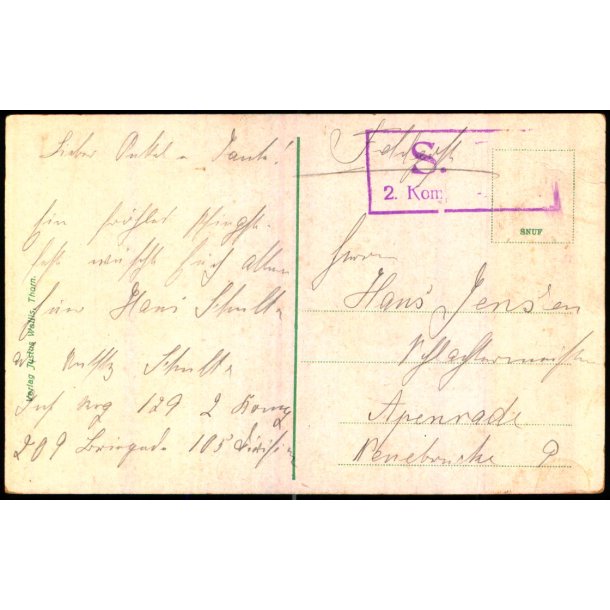 Lieber Onkel u Tante!
Ein fröhles Pfingst-
fest wünscht Euch allen
Euer Hans Schultz
Schultz
Inf Reg 129 2 Komp
209 Briegade 105 Divisi
Verlag Justus Wallis, Thorn.
Feldpost
S.
2. Kom
SNUF
Herrn
Hans Jensen
Schlachtermeister
Apenrade